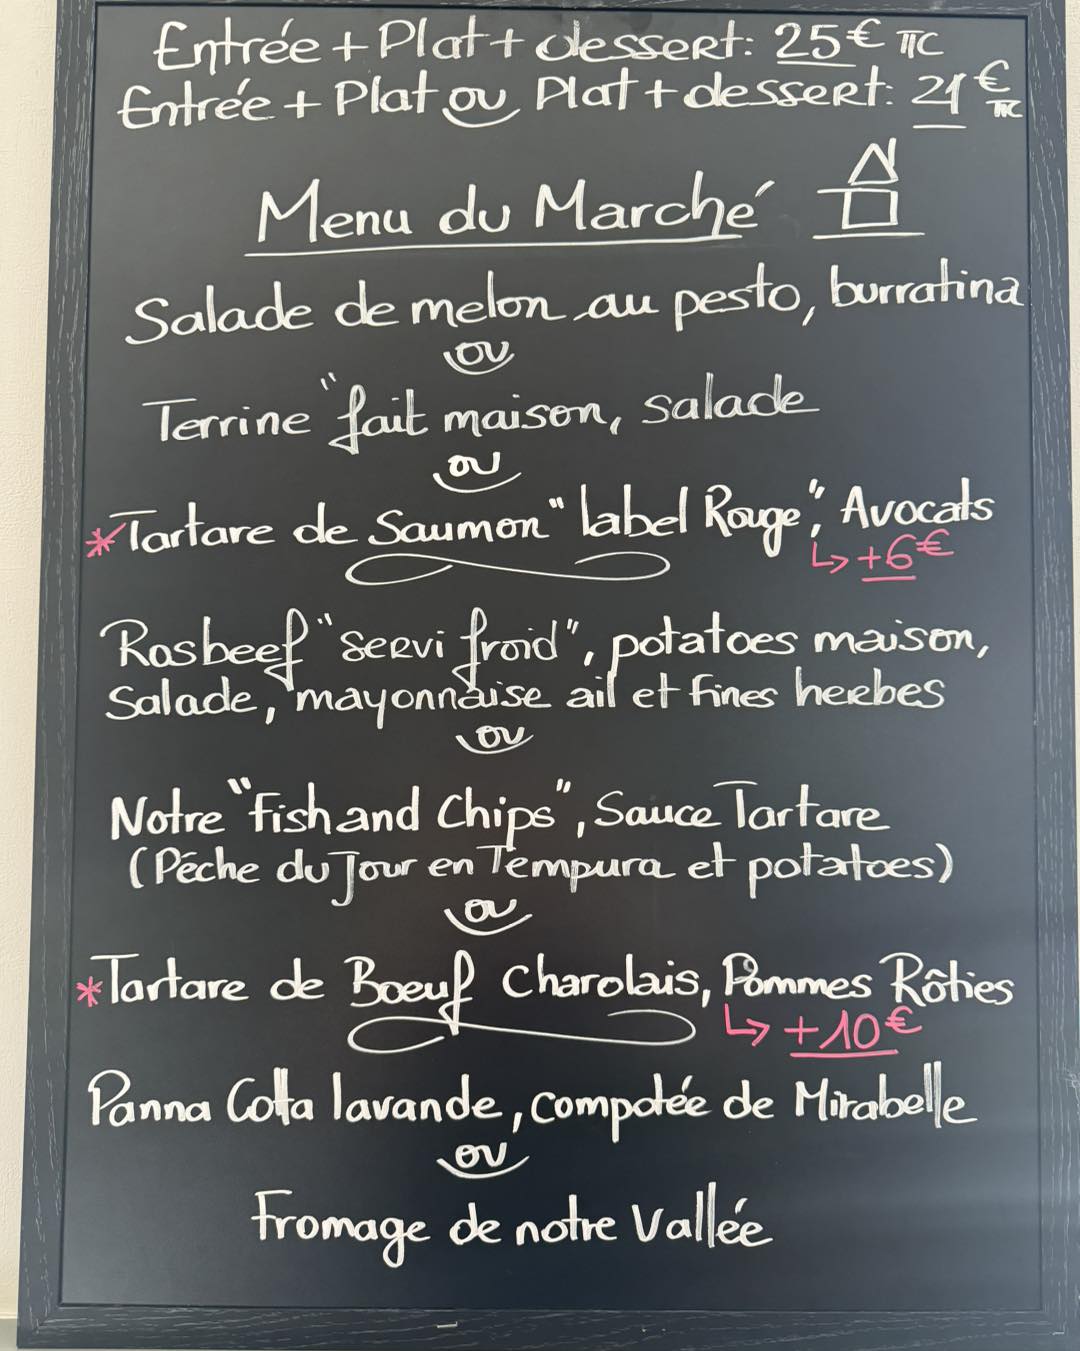 Entrée + Plat + dessert: 25€ TTC
Entrée + Plat ou Plat + dessert: 21€ TTC
Menu du Marché
Salade de melon au pesto, burratina
ou
Terrine "fait maison, salade
ou
*Tartare de Saumon "label Rouge", Avocats
↳ +6€
Rosbeef "servi froid", potatoes maison,
Salade, mayonnaise ail et fines herbes
ou
Notre "Fish and Chips", Sauce Tartare
(Pêche du Jour en Tempura et potatoes)
ou
*Tartare de Boeuf Charolais, Pommes Rôties
↳ +10€
Panna Cotta lavande, compotée de Mirabelle
ou
Fromage de notre Vallée